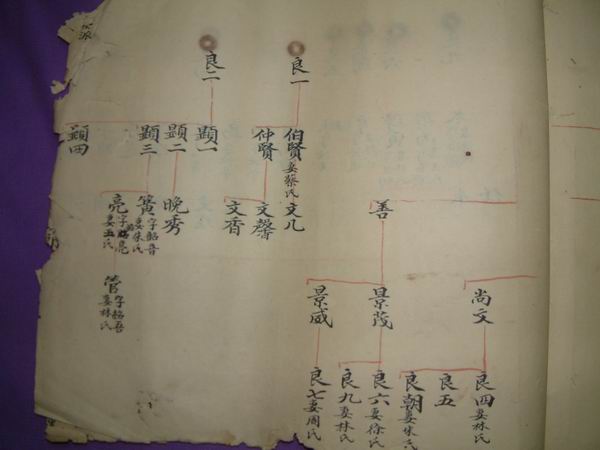 良一
良二
伯賢妻蔡氏
仲賢
顕一
顕二
顕三
顕四
文几
文馨
文香
晚秀
簧字韶音妻朱氏
亮
管字韶吾妻林氏
善
尚文
景茂
景威
良四妻林氏
良五
良朝妻朱氏
良六妻徐氏
良九妻林氏
良七妻周氏